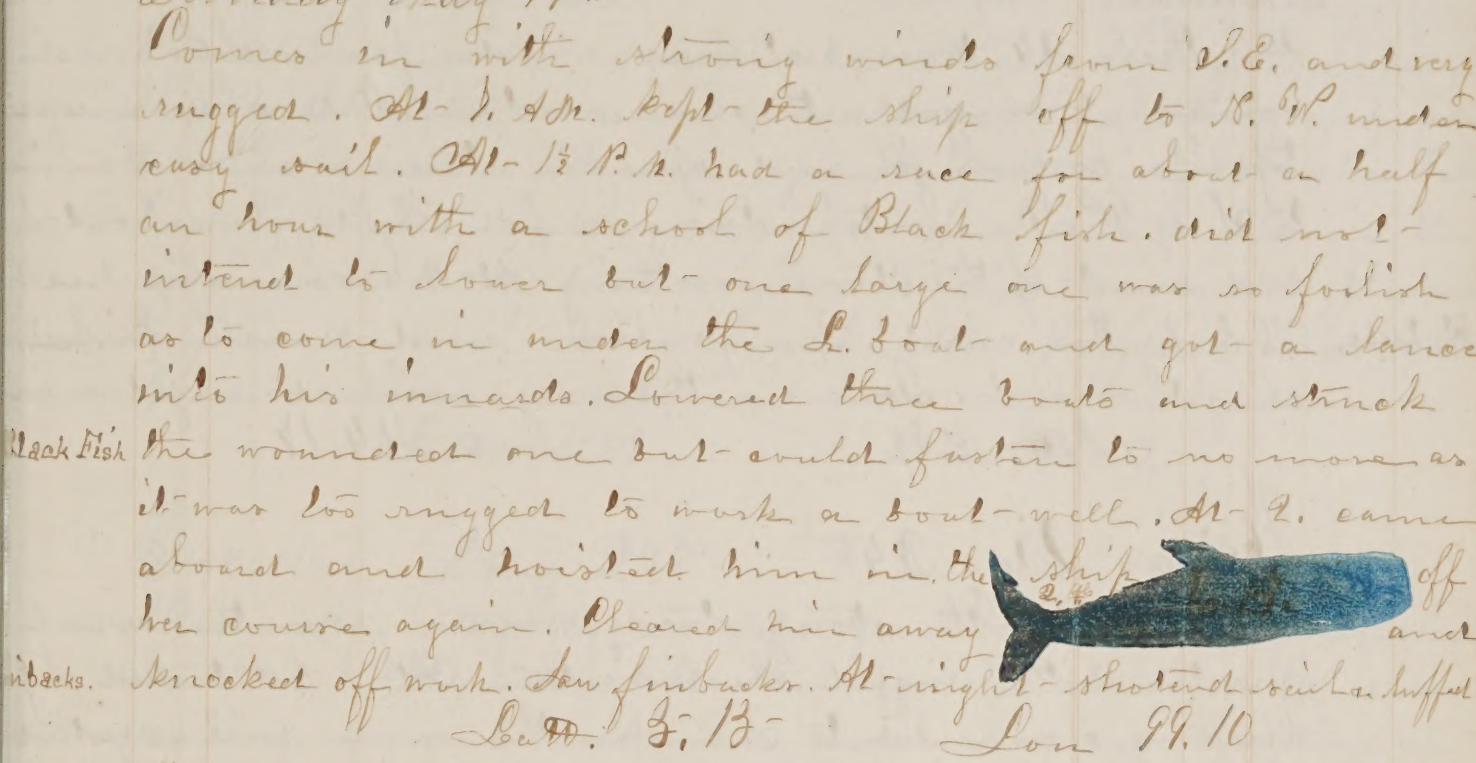 Comes in with strong winds from S.E. and very
rugged. At 7. AM. kept the ship off to N. W. under
easy sail. At 1½ P.M. had a race for about a half
an hour with a school of Black fish. did not
intend to lower but one large one was so foolish
as to come in under the L. boat and got a lance
into his innards. Lowered three boats and struck
Black Fish the wounded one but could fasten to no more as
it was too rugged to work a boat well. At 2. came
aboard and hoisted him in. the ship off
her course again. Cleared him away and
nbacks. knocked off work. Saw finbacks. At night shotend sail & luffed
Latt. 3, 13 Lon 99.10